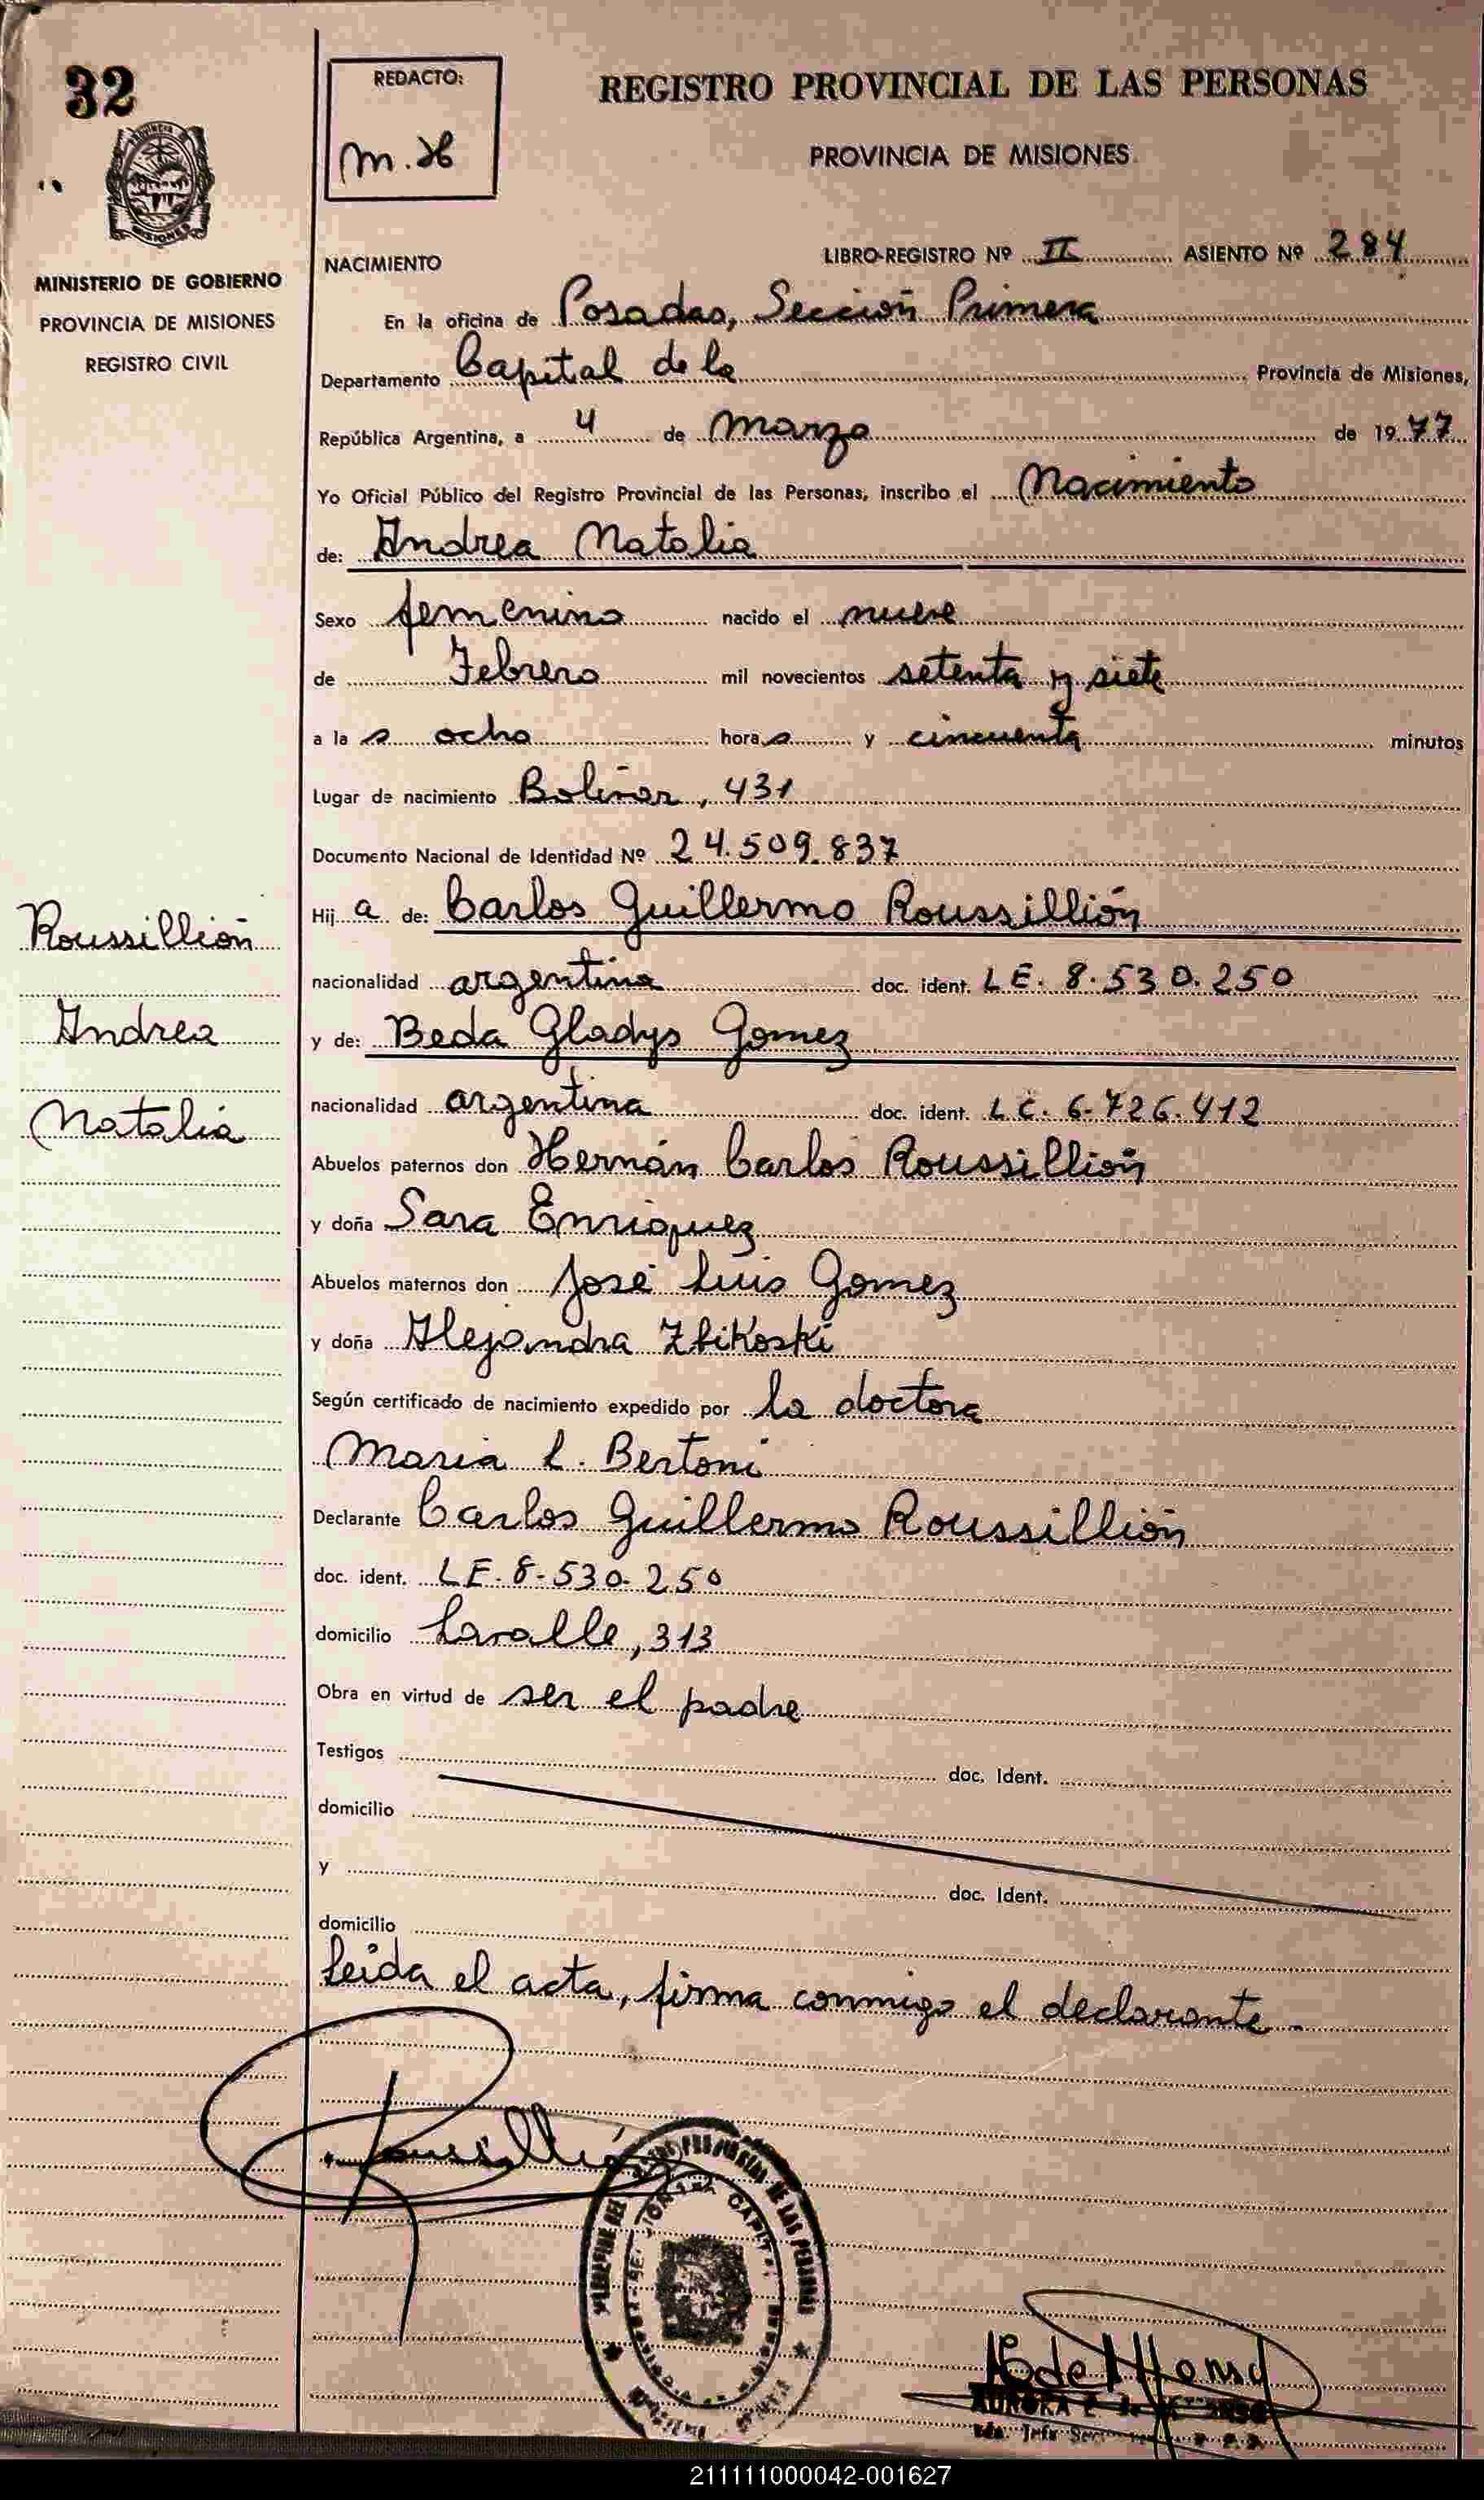 32
REDACTO:
M. H
REGISTRO PROVINCIAL DE LAS PERSONAS
PROVINCIA DE MISIONES
MISIONES
MINISTERIO DE GOBIERNO
PROVINCIA DE MISIONES
REGISTRO CIVIL
NACIMIENTO LIBRO-REGISTRO Nº II ASIENTO Nº 284
En la oficina de Posadas, Sección Primera
Departamento Capital de la Provincia de Misiones,
República Argentina, a 4 de Marzo de 1977
Yo Oficial Público del Registro Provincial de las Personas, inscribo el Nacimiento
de: Andrea Natalia
Sexo femenino nacido el nueve
de Febrero mil novecientos setenta y siete
a la s ocho hora s y cincuenta minutos
Lugar de nacimiento Bolivar, 431
Documento Nacional de Identidad Nº 24.509.837
Hij a de: Carlos Guillermo Roussillión
nacionalidad argentina doc. ident. L E. 8.530.250
y de: Beda Gladys Gomez
nacionalidad argentina doc. ident. L C. 6.726.412
Abuelos paternos don Hernán Carlos Roussillión
y doña Sara Enriquez
Abuelos maternos don José Luis Gomez
y doña Alejandra Zbikoski
Según certificado de nacimiento expedido por la doctora
Maria L. Bertoni
Declarante Carlos Guillermo Roussillión
doc. ident. L E. 8-530-250
domicilio Lavalle, 313
Obra en virtud de ser el padre
Testigos doc. Ident.
domicilio
y doc. Ident.
domicilio
Leida el acta, firma conmigo el declarante -
Roussillión
Andrea
Natalia
Roussillió
DE LAS PERSONAS
211111000042-001627